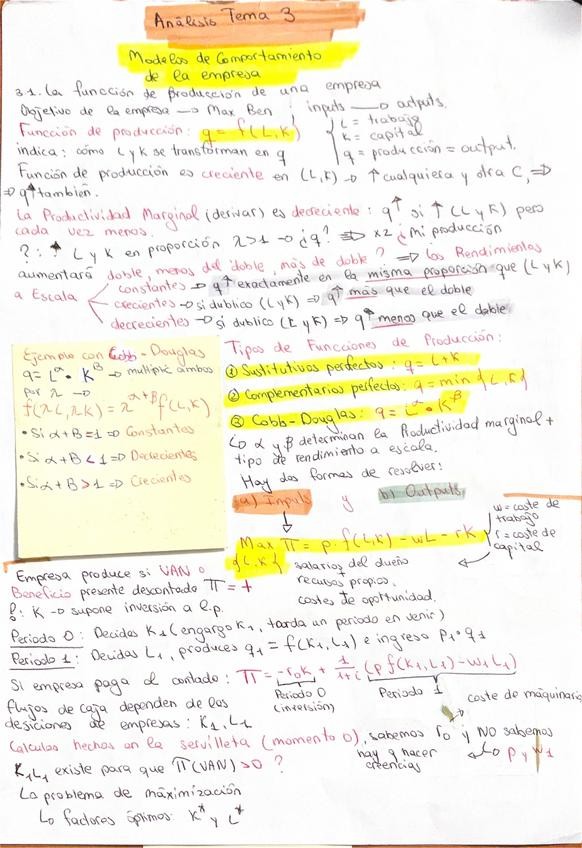 Análisis Tema 3
Modelos de Comportamiento
de la empresa
3.1. La función de producción de una empresa
Objetivo de la empresa → Max Ben inputs → outputs.
Función de producción: q = f(L,K) { L = trabajo
K = capital
q = producción = output.
indica: cómo L y K se transforman en q
Función de producción es creciente en (L,K) → ↑ cualquiera y otra C, ⇒
⇒ q↑ también.
La Productividad Marginal (derivar) es decreciente: q↑ si ↑ (L y K) pero
cada vez menos.
?: ↑ L y K en proporción λ>1 → ¿q? ⇒ x2 ¿Mi producción
aumentará doble, menos del doble, más de doble? ⇒ los Rendimientos
a Escala
constantes → q↑ exactamente en la misma proporción que (L y K)
crecientes → si dublico (L y K) ⇒ q↑ más que el doble
decrecientes → si dublico (L y K) ⇒ q↑ menos que el doble
Ejemplo con Cobb-Douglas
q = L^α • K^β → multiplic ambos
por λ →
f(λL, λK) = λ^α+β f(L,K)
• Si α+β=1 ⇒ Constantes
• Si α+β<1 ⇒ Decrecientes
• Si α+β>1 ⇒ Crecientes
Tipos de Funciones de Producción:
① Sustitutivos perfectos: q = L+K
② Complementarios perfectos: q = min {L,K}
③ Cobb-Douglas: q = L^α • K^β
↳ α y β determinan la Productividad marginal +
tipo de rendimiento a escala.
Hay dos formas de resolver:
(a) Inputs y b) Outputs
Max Π = p · f(L,K) - wL - rK
{L,K}
w = coste de
trabajo
r = coste de
capital
salarios del dueño
+
recursos propios.
+
costes de oportunidad.
Empresa produce si VAN o
Beneficio presente descontado Π = +
K → supone inversión a l.p.
Periodo 0: Decidas K1 (engargo K1, tarda un periodo en venir)
Periodo 1: Decidas L1, produces q1 = f(K1, L1) e ingreso p1 • q1
Si empresa paga al contado: Π = -r0K + 1/1+i (p f(K1, L1) - w1L1)
Periodo 0
(inversión)
Periodo 1
flujos de caja dependen de las
desiciones de empresas: K1, L1
coste de máquinaria
Calculos hechos en la servilleta (momento 0), sabemos r0 y NO sabemos
↳ p y w1
hay q hacer
creencias
K1L1 existe para que Π(VAN) > 0 ?
↳ problema de máximización
↳ factores óptimos: K* y L*